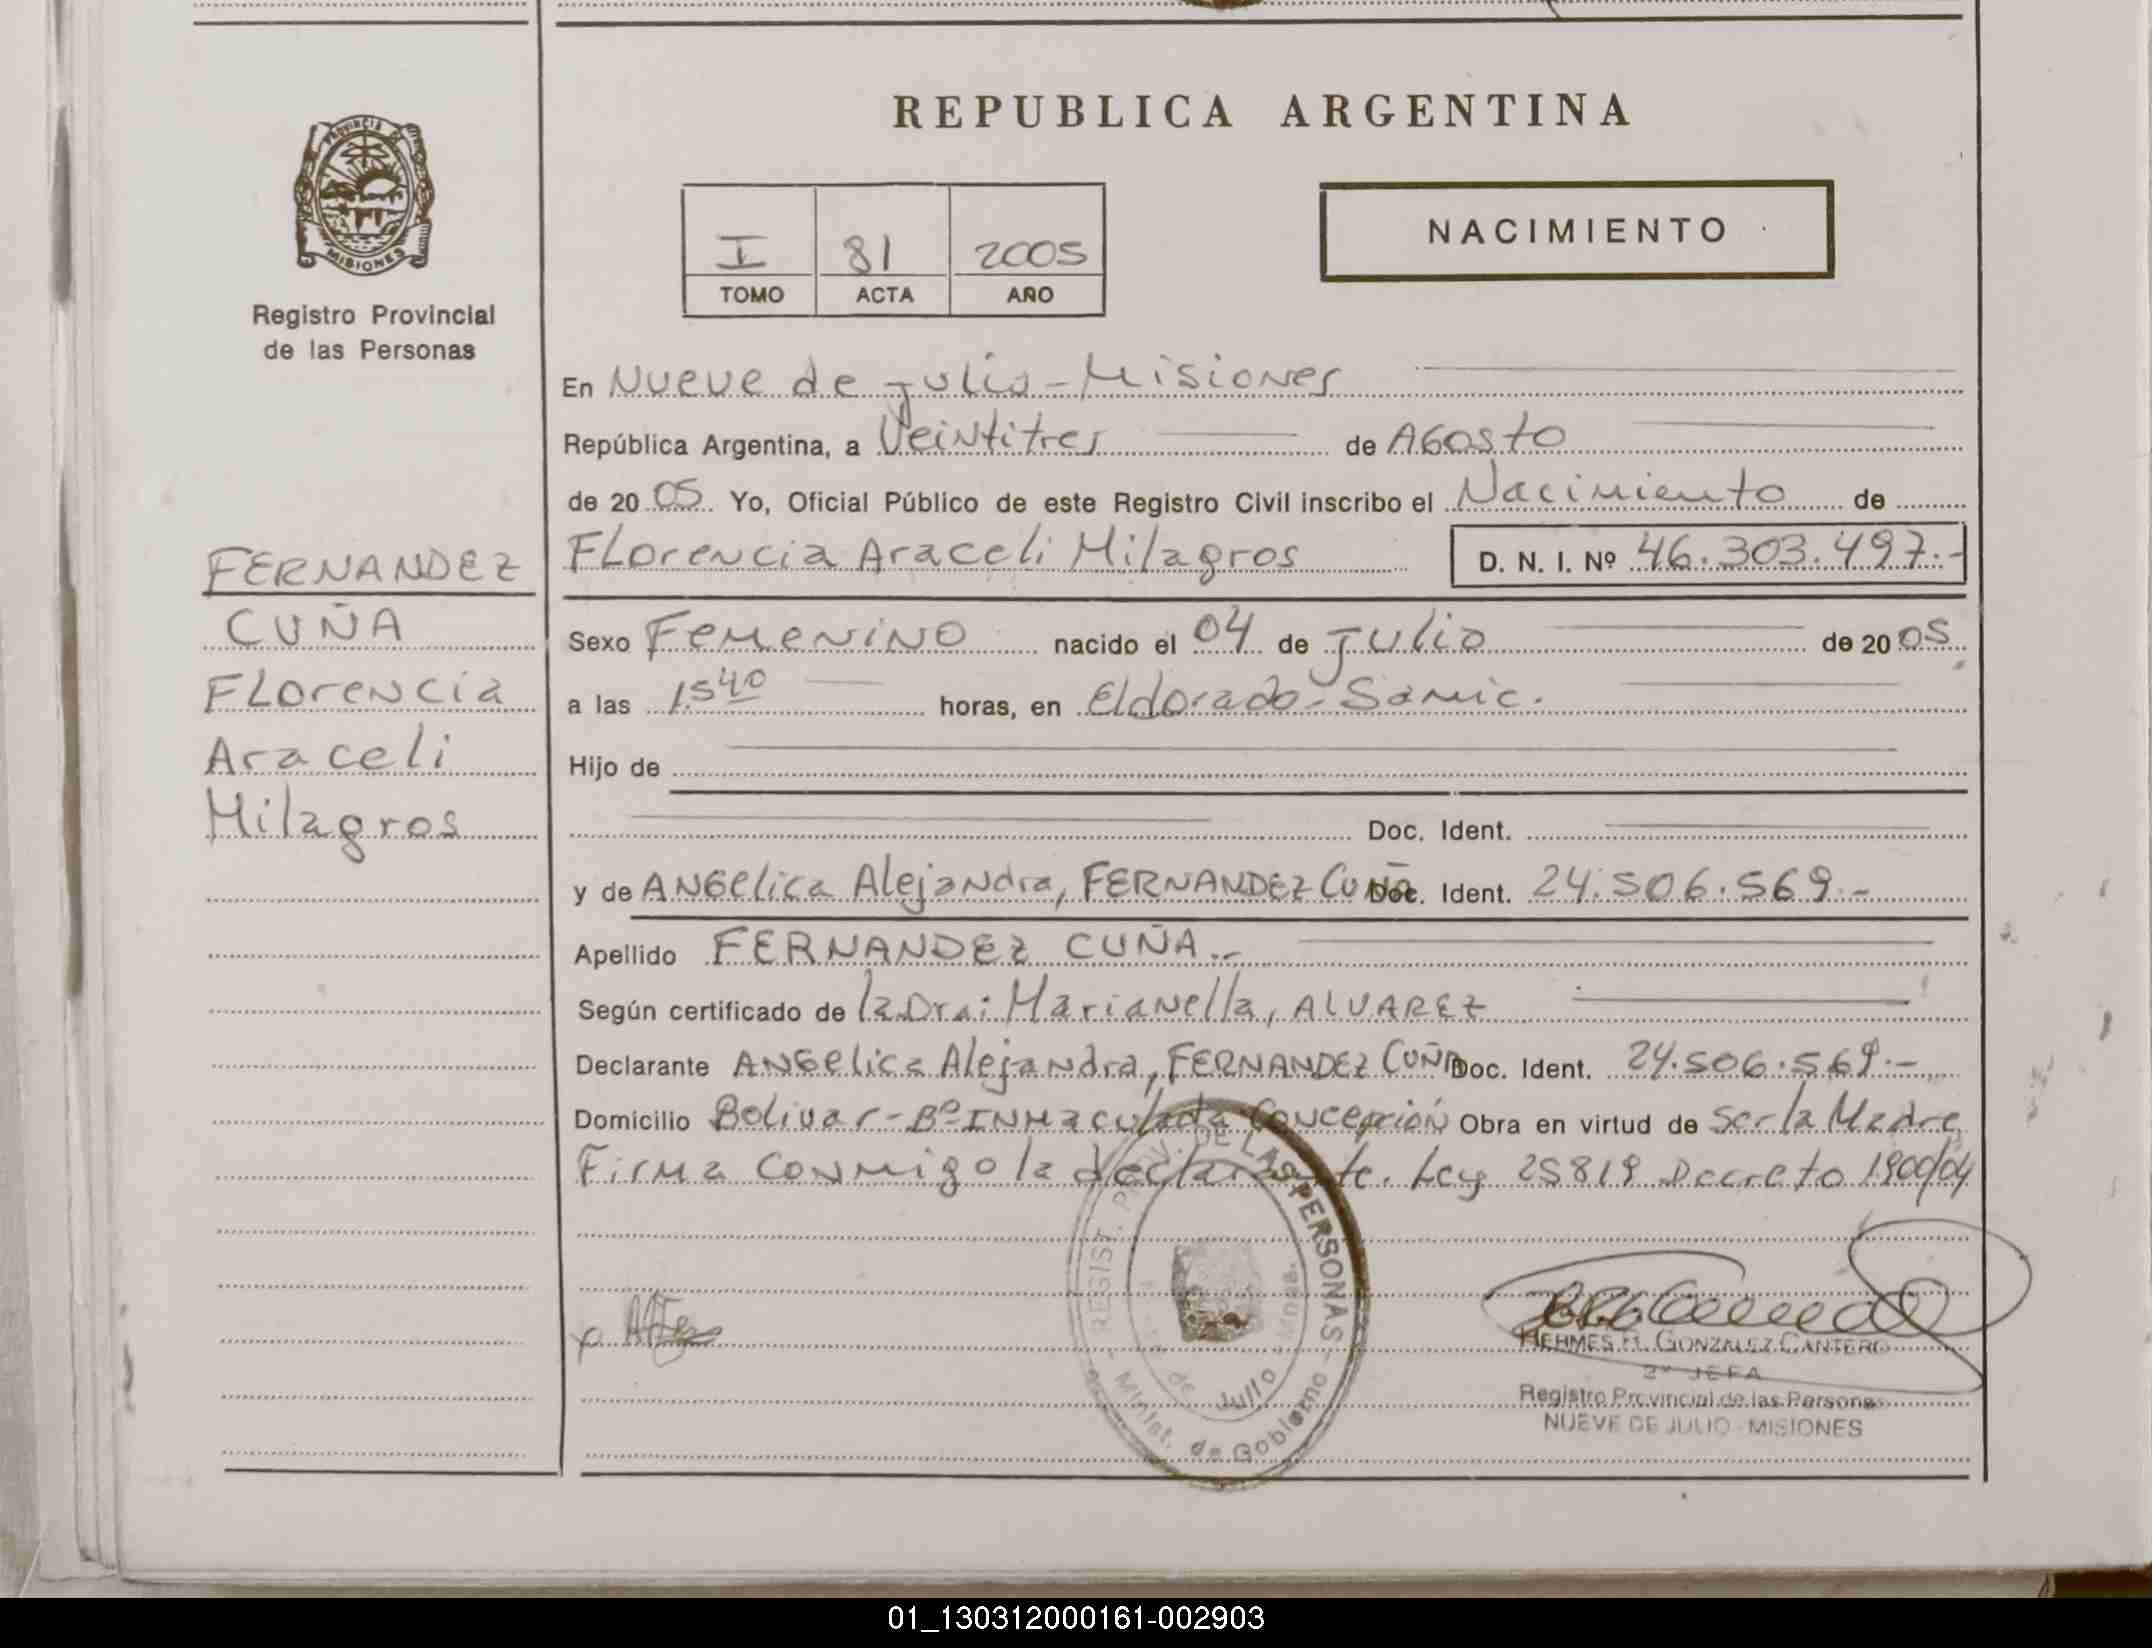 REPUBLICA ARGENTINA
PROVINCIA DE
MISIONES
Registro Provincial
de las Personas
I 81 2005
TOMO ACTA AÑO
NACIMIENTO
En Nueve de Julio - Misiones
República Argentina, a Veintitres de Agosto
de 2005 Yo, Oficial Público de este Registro Civil inscribo el Nacimiento de
Florencia Araceli Milagros D. N. I. Nº 46.303.497.-
FERNANDEZ
CUÑA
Florencia
Araceli
Milagros
Sexo Femenino nacido el 04 de Julio de 2005
a las 15 40 horas, en Eldorado - Samic.
Hijo de
Doc. Ident.
y de Angelica Alejandra, FERNANDEZ CUÑA Doc. Ident. 24.506.569.-
Apellido FERNANDEZ CUÑA.-
Según certificado de la Dra: Marianella, ALVAREZ
Declarante Angelica Alejandra, FERNANDEZ CUÑA Doc. Ident. 24.506.569.-
Domicilio Bolivar - Bº Inmaculada Concepción Obra en virtud de Ser la Madre
Firma conmigo la declarante. Ley 25819 Decreto 1900/04
REGIST. PROV. DE LAS PERSONAS
Minist. de Gobierno
de Julio - Mnes.
HERMES H. GONZALEZ CANTERO
2ª JEFA
Registro Provincial de las Personas
NUEVE DE JULIO - MISIONES
01_130312000161-002903